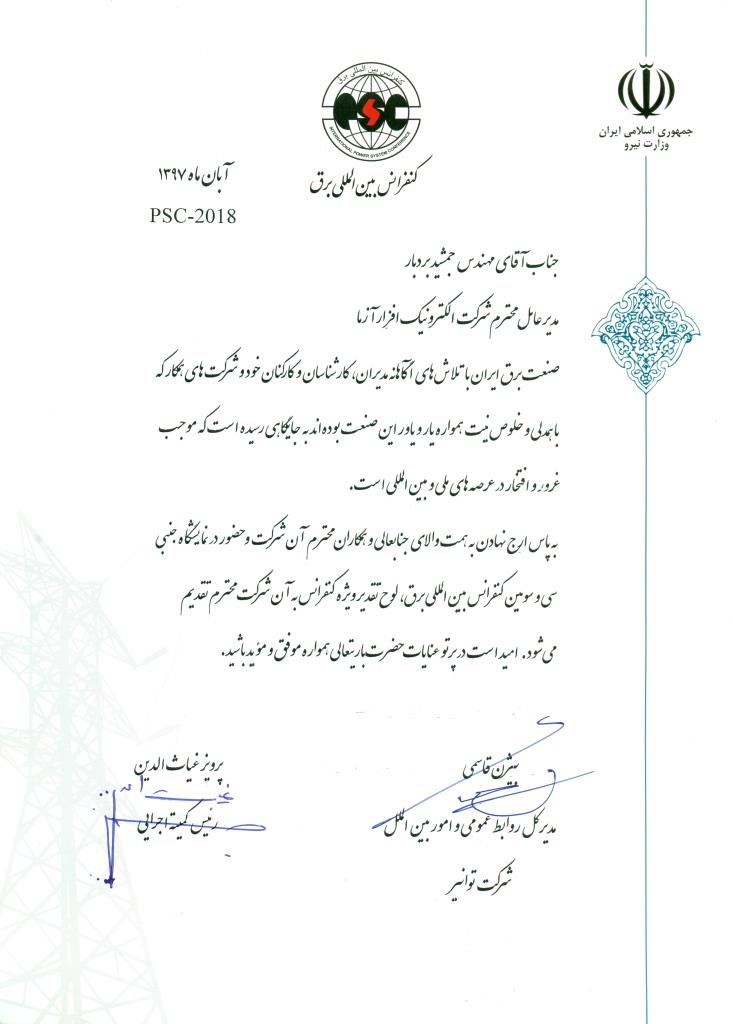 کنفرانس بین المللی برق
PSC
INTERNATIONAL POWER SYSTEM CONFERENCE
جمهوری اسلامی ایران
وزارت نیرو
کنفرانس بین المللی برق
آبان ماه ۱۳۹۷
PSC-2018
جناب آقای مهندس جمشید بردبار
مدیر عامل محترم شرکت الکترونیک افزار آزما
صنعت برق ایران با تلاش های آگاهانه مدیران، کارشناسان و کارکنان خود و شرکت های همکار که
با همدلی و خلوص نیت همواره یار و یاور این صنعت بوده اند به جایگاهی رسیده است که موجب
غرور و افتخار در عرصه های ملی و بین المللی است.
به پاس ارج نهادن به همت والای جنابعالی و همکاران محترم آن شرکت و حضور در نمایشگاه جنبی
سی و سومین کنفرانس بین المللی برق، لوح تقدیر ویژه کنفرانس به آن شرکت محترم تقدیم
می شود. امید است در پرتو عنایات حضرت باریتعالی همواره موفق و مؤید باشید.
بیژن قاسمی
مدیر کل روابط عمومی و امور بین الملل
شرکت توانیر
پرویز غیاث الدین
رئیس کمیته اجرایی